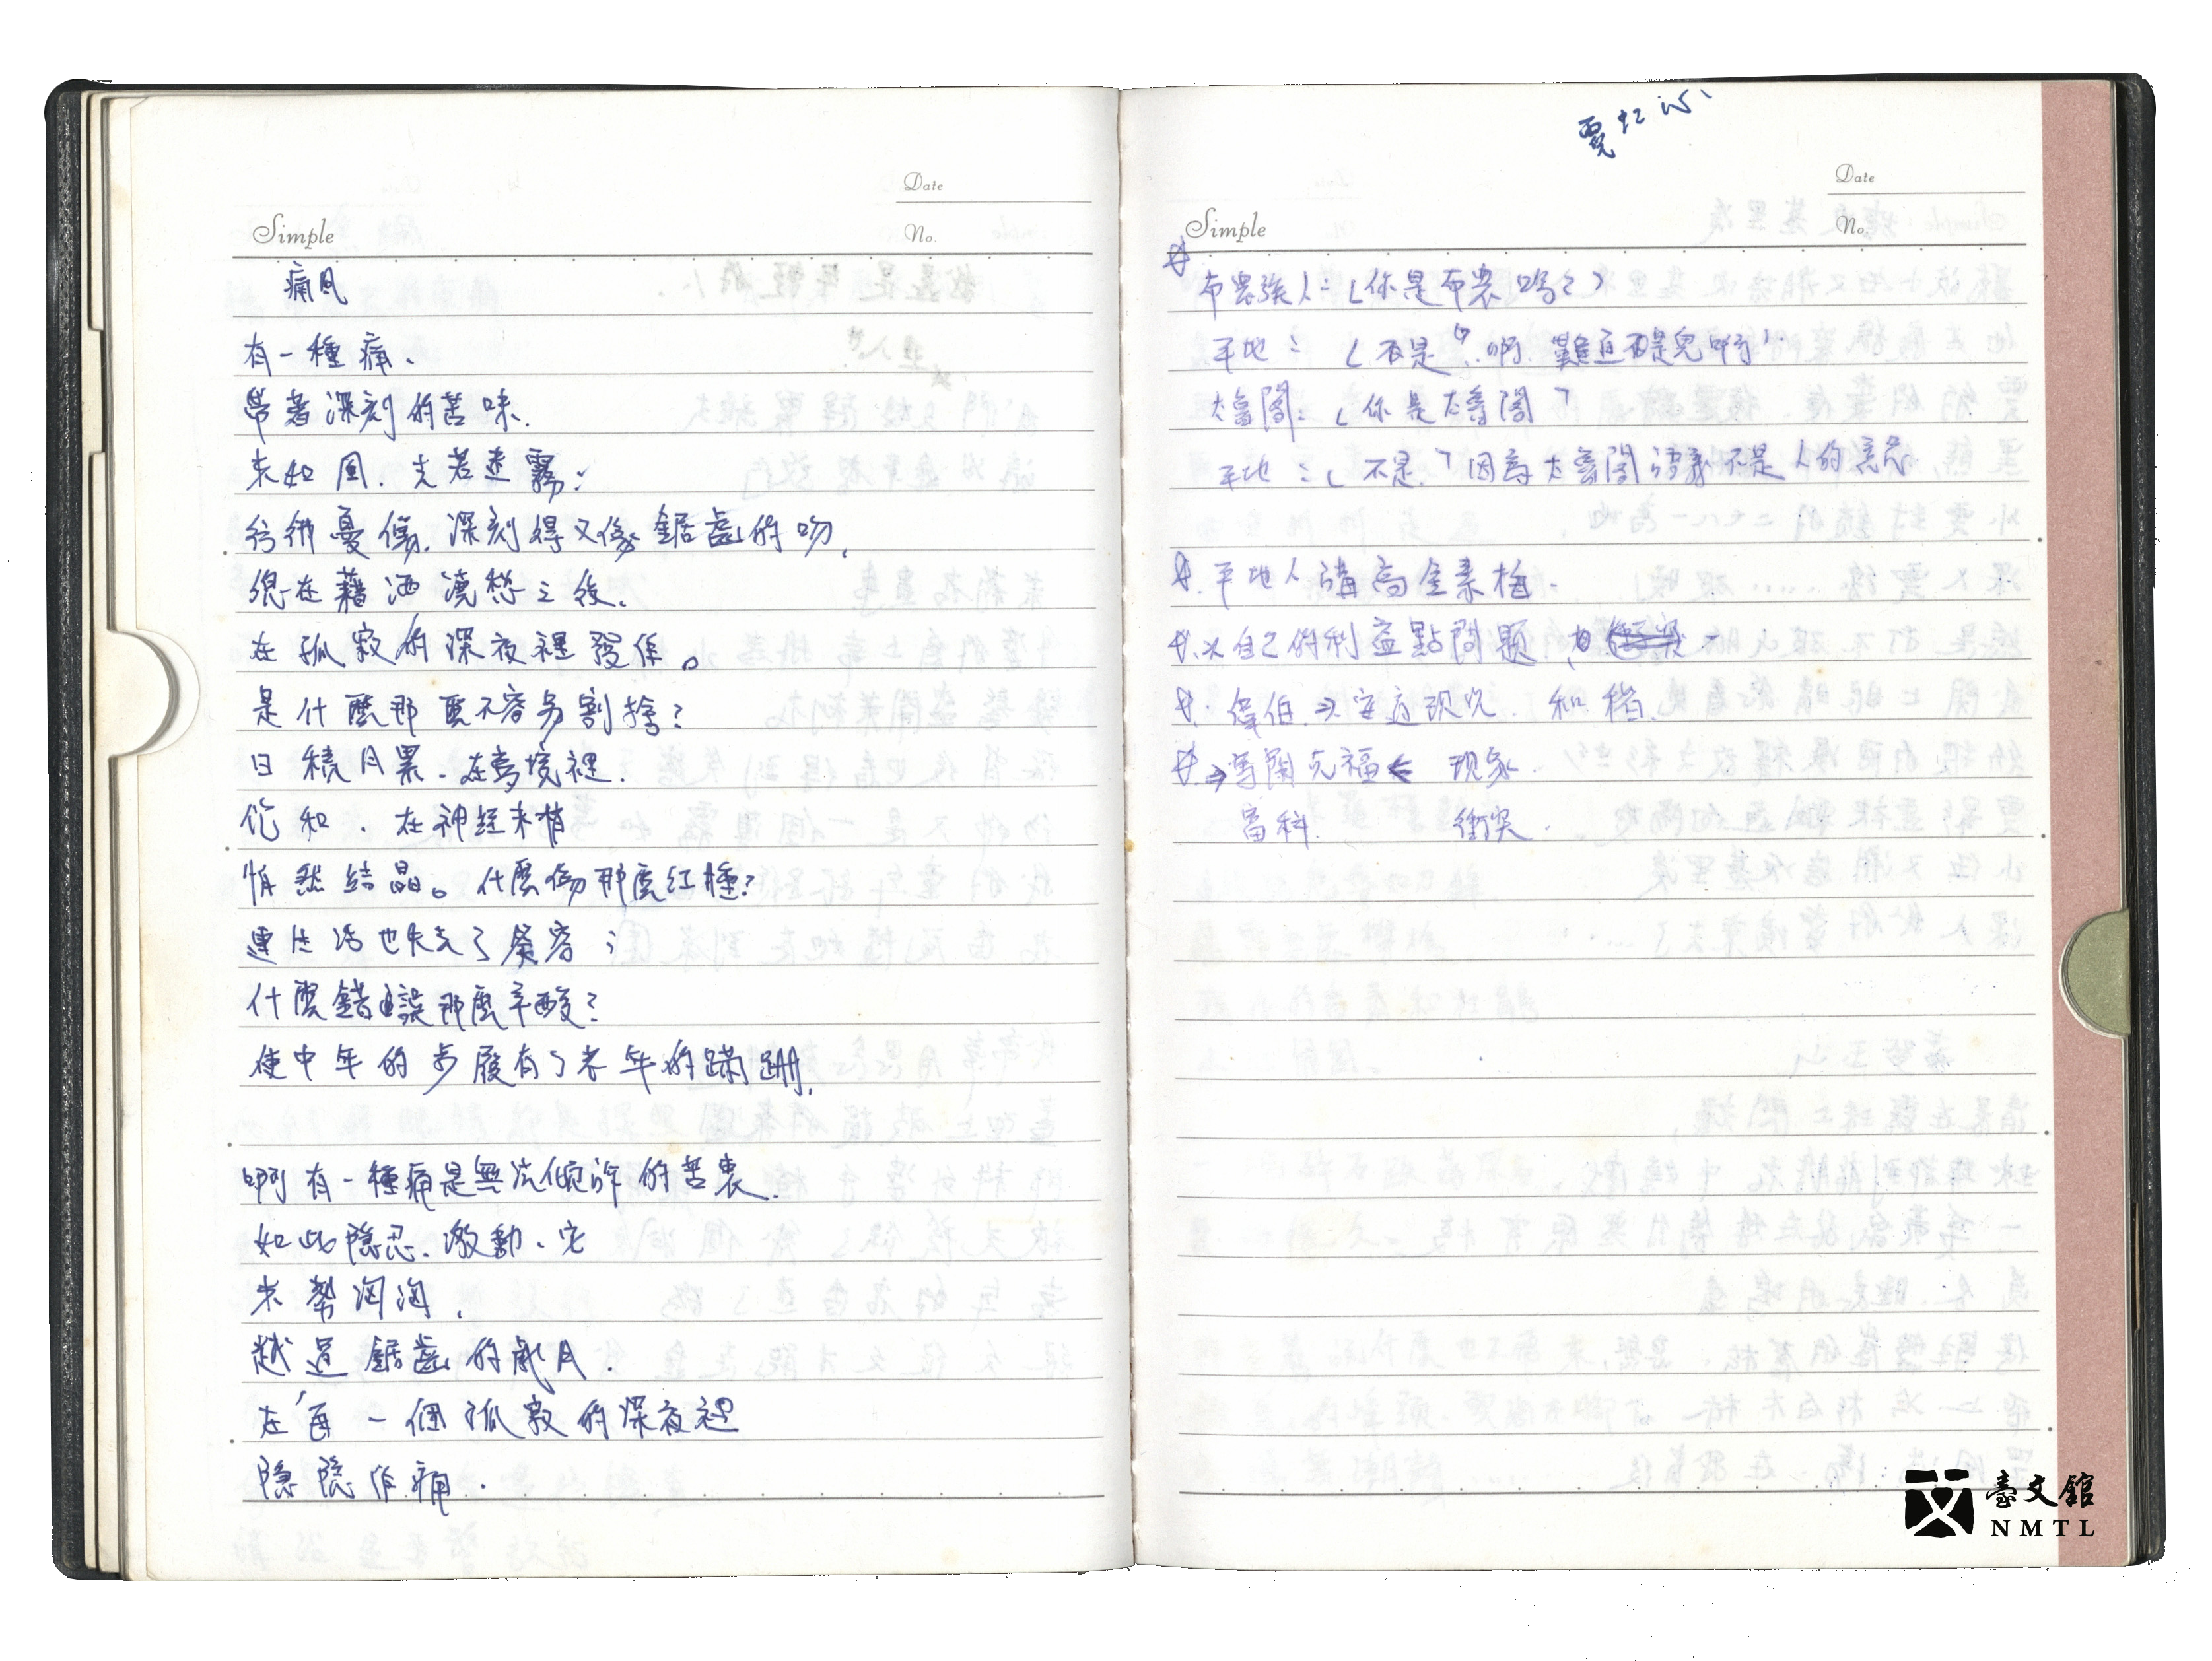 Date
Simple
No.
痛風
有一種痛、
帶著深刻的苦味、
來如風、去若迷霧；
彷彿憂傷、深刻得又像鋸齒的吻、
總在藉酒澆愁之後、
在孤寂的深夜裡發作。
是什麼那麼不容易割捨？
日積月累、在夢境裡、
飽和、在神經末梢
悄然結晶。什麼傷那麼紅腫？
連生活也失去了從容；
什麼錯誤那麼辛酸？
使中年的步履有了老年的蹣跚、
啊有一種痛是無法傾訴的苦衷、
如此隱忍、激動、它
來勢洶洶、
越過鋸齒的歲月、
在每一個孤寂的深夜裡
隱隱作痛、
Date
Simple
No.
布農族人：「你是布農嗎？」
平地：「不是」啊、難道不是 啊」
太魯閣：「你是太魯閣」
平地：「不是」因為太魯閣 不是人的意思
平地人講高金素梅、
以自己的利益點問題、
偉伯 現況、和稽
現象、
富科、 衝突、
臺文館
NMTL